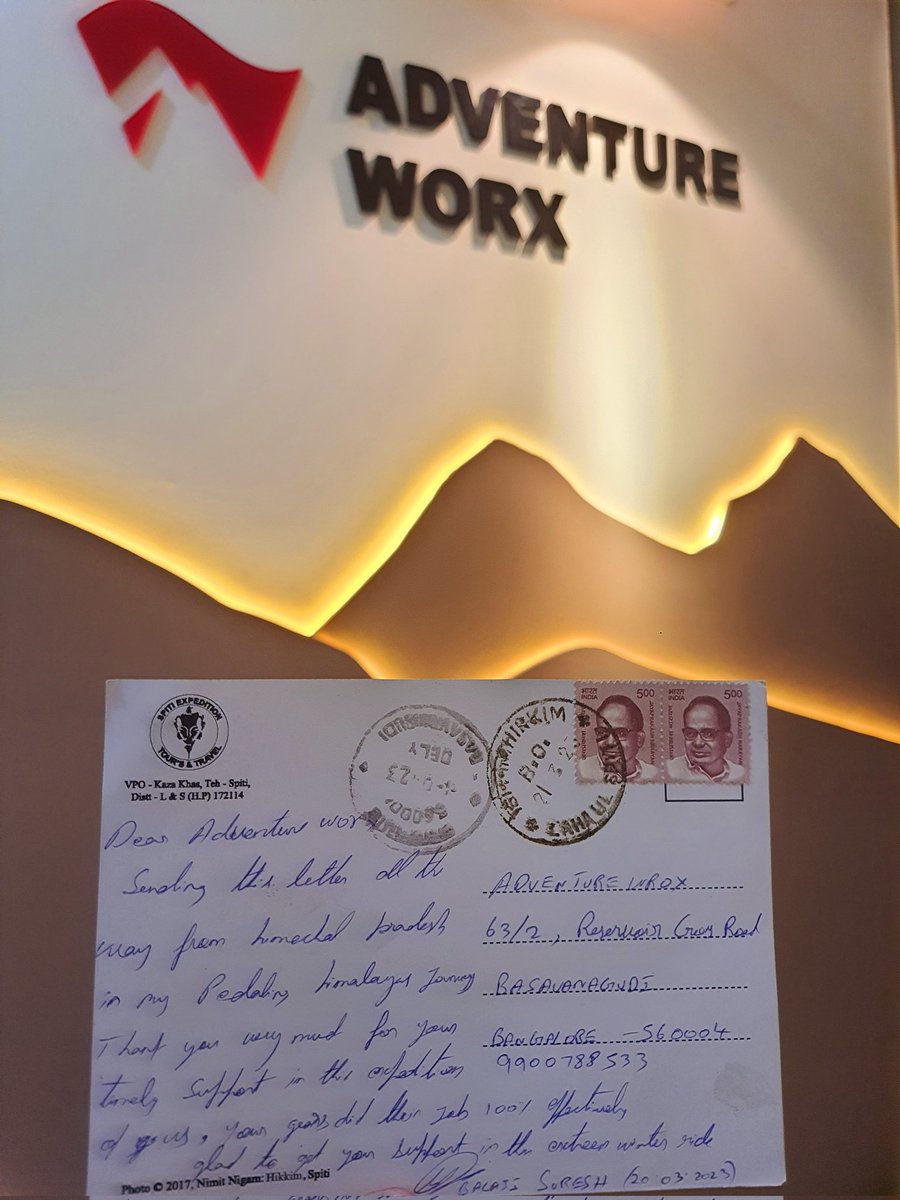 ADVENTURE
WORX
SPITI EXPEDITION
&
TOUR'S & TRAVEL
VPO - Kaza Khas, Teh - Spiti,
Distt - L & S (H.P) 172114
BASAVANAGUDI
DELY
23
560004
B.O.
21
LAHAUL
भारत
INDIA
500
भारत
INDIA
500
Dear Adventure worx
Sending this letter all the
way from himachal pradesh
in my Pedaling himalayas Journey
Thank you very much for your
timely Support in this expedition
of ours, your gears did their Job 100% effectively
glad to get your Support in this extreem winter ride
BALAJI SURESH (20 03 2023)
ADVENTURE WROX
63/2, Reservoir Road
BASAVANAGUDI
BANGALORE - 560004
9900788533
Photo © 2017, Nimit Nigam: Hikkim, Spiti